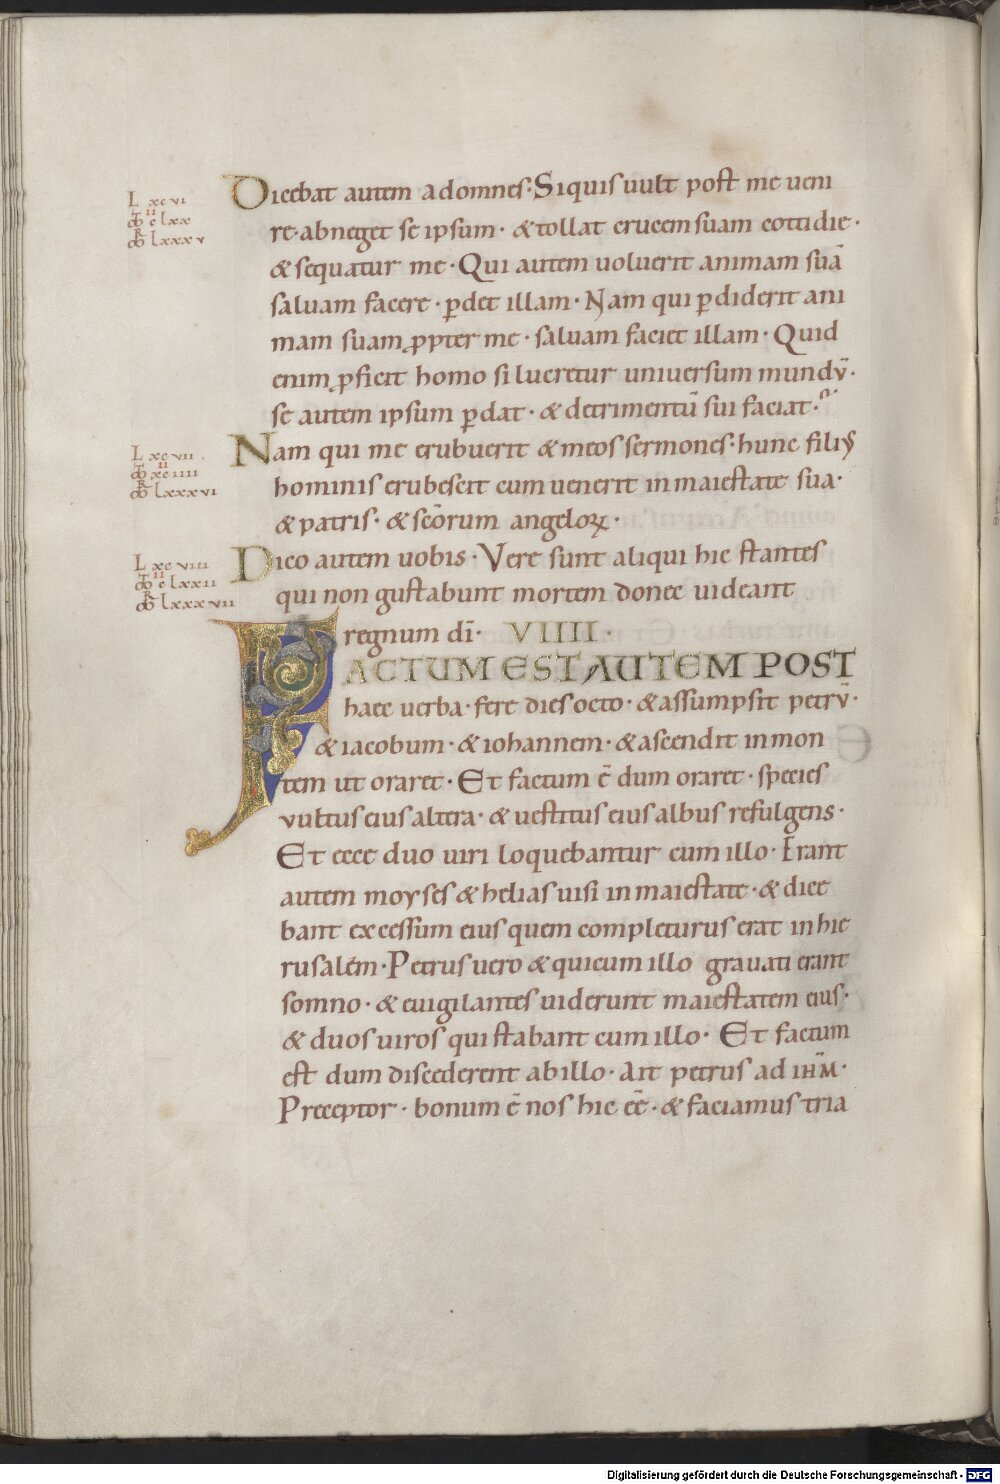 L xcvi
II
M clxx
R
M lxxxv
Dicebat autem adomnes· Siquis uult post me ueni
re· abneget se ipsum· & tollat crucem suam cottidie·
& sequatur me· Qui autem uoluerit animam suā
saluam facere· ꝑdet illam· Nam qui ꝑdiderit ani
mam suam ꝓpter me· saluam faciet illam· Quid
enim ꝓficit homo si lucretur universum mundū·
se autem ipsum ꝑdat· & detrimentū sui faciat·
L xcvii
II
M xciiii
R
M lxxxvi
Nam qui me erubuerit & meos sermones· hunc filiꝰ
hominis erubescit cum uenerit inmaiestate sua·
& patris· & scōrum angeloꝝ·
L xcviii
II
M clxxii
R
M lxxxvii
Dico autem uobis· Vere sunt aliqui hic stantes
qui non gustabunt mortem donec uideant
regnum dī· VIIII·
FACTUM EST AUTEM POST
haec uerba· fere dies octo· & assumpsit petrū·
& iacobum· & iohannem· & ascendit inmon
tem ut oraret· Et factum ē dum oraret· species
vultus eius altera· & uestitus eius albus refulgens·
Et ecce duo uiri loquebantur cum illo· Erant
autem moyses & helias uisi inmaiestate· & dice
bant excessum eius quem completurus erat inhie
rusalem· Petrus uero & quicum illo grauati erant
somno· & euigilantes uiderunt maiestatem eius·
& duos uiros qui stabant cum illo· Et factum
est dum discederent abillo· Ait petrus ad IHM̄·
Preceptor· bonum ē nos hic eē· & faciamus tria
Digitalisierung gefördert durch die Deutsche Forschungsgemeinschaft - DFG